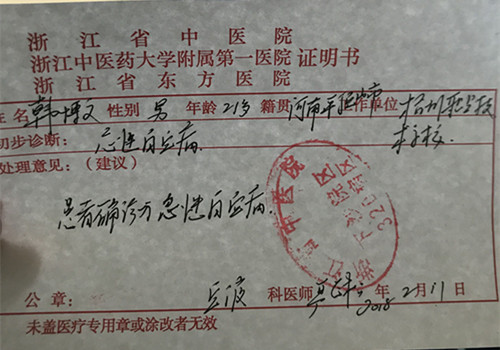 浙江省中医院
浙江中医药大学附属第一医院 证明书
浙江省东方医院
姓名 韩博文 性别 男 年龄 21岁 籍贯 河南平 工作单位 杭州
初步诊断: 急性白血病
处理意见:(建议)
患者确诊为急性白血病
公章: 血液 科医师 年2月11日
2018
未盖医疗专用章或涂改者无效